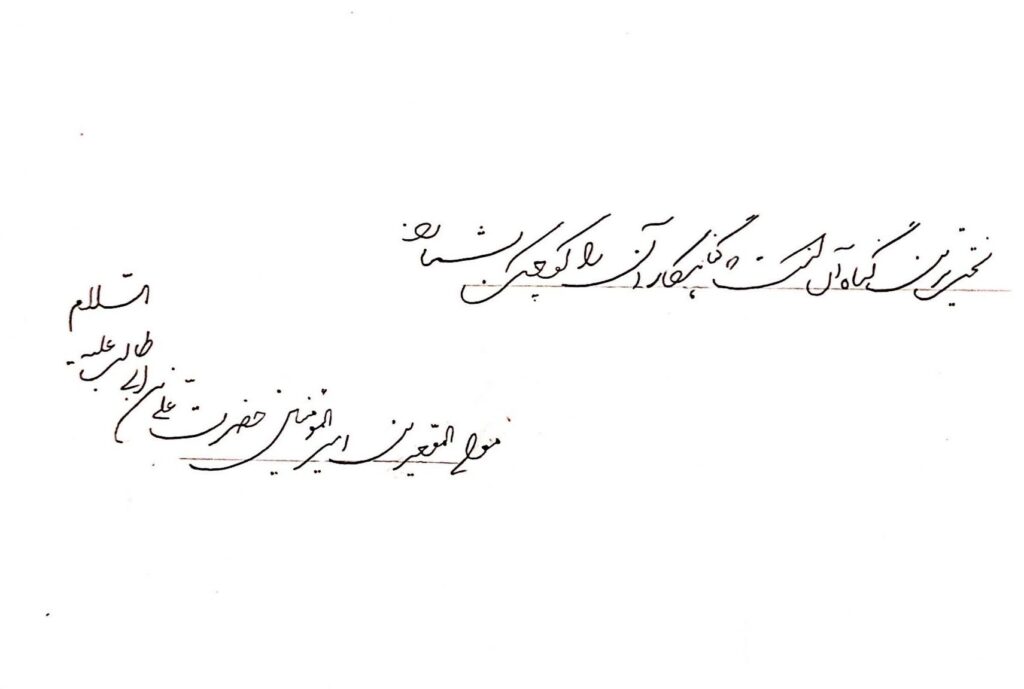 سختترین گناه آن است که گناهکار آن را کوچک بشمارد
مولی الموحدین امیر المؤمنین حضرت علی بن ابی طالب علیه السلام